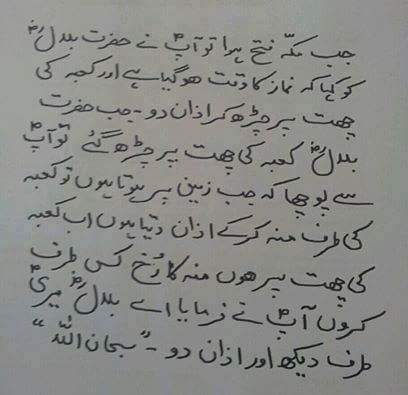 جب مکّہ فتح ہوا تو آپؐ نے حضرت بلالؓ
کو کہا کہ نماز کا وقت ھوگیا ہے اور کعبہ کی
چھت پر چڑھ کر اذان دو - جب حضرت
بلالؓ کعبہ کی چھت پر چڑھ گئے تو آپؐ
سے پوچھا کہ جب زمین پر ہوتا ہوں تو کعبہ
کی طرف منہ کر کے اذان دیتا ہوں اب کعبہ
کی چھت پر ھوں منہ کا رُخ کس طرف
کروں آپؐ نے فرمایا اے بلالؓ میری
طرف دیکھ اور اذان دو - "سبحان اللہ"